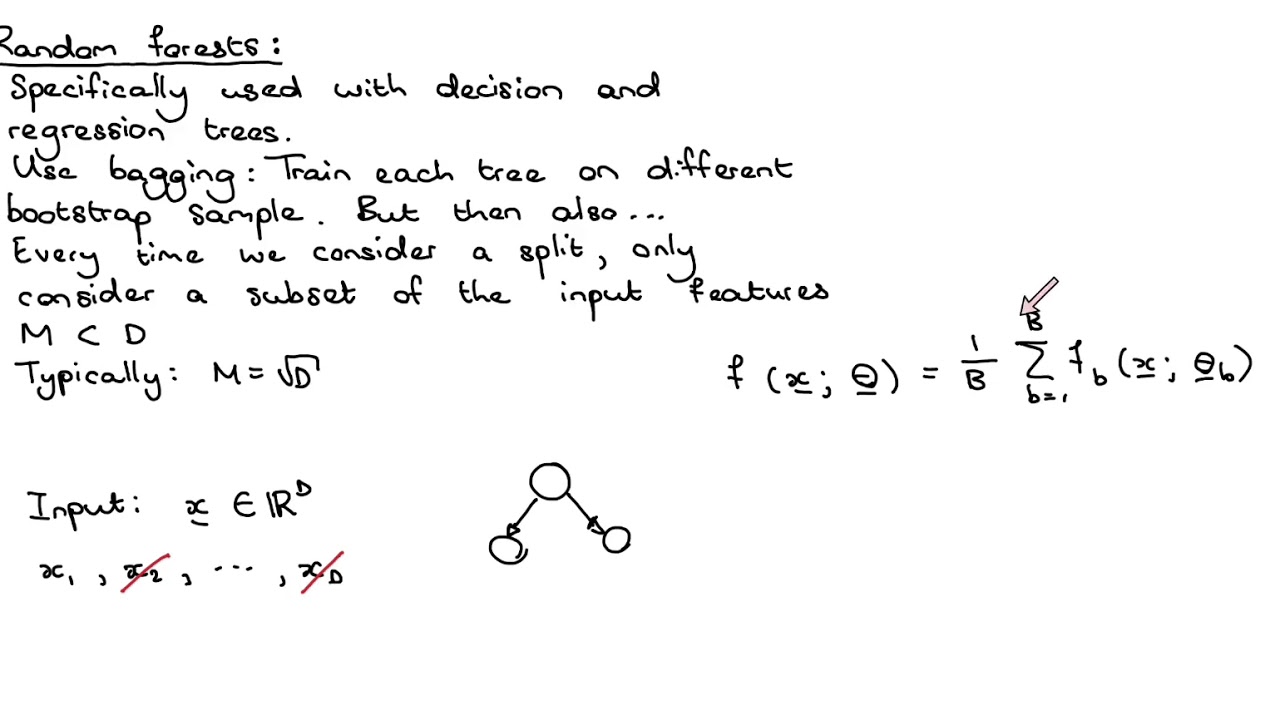 Random forests:
Specifically used with decision and
regression trees.
Use bagging: Train each tree on different
bootstrap sample. But then also...
Every time we consider a split, only
consider a subset of the input features
M < D
Typically: M = √D
f(x; θ) = 1/B ∑_{b=1}^{B} f_b(x; θ_b)
Input: x ∈ ℝ^D
x₁, x₂, ..., x_D